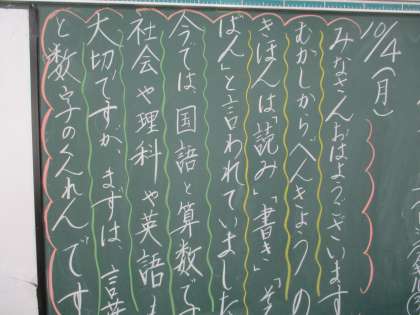 10/4(月)
みなさんおはようございます
むかしからべんきょうの
きほんは「読み」「書き」「そ
ばん」と言われていました
今では国語と算数で
社会や理科や英語も
大切ですが、まずは、言葉
と数字のくんれんです